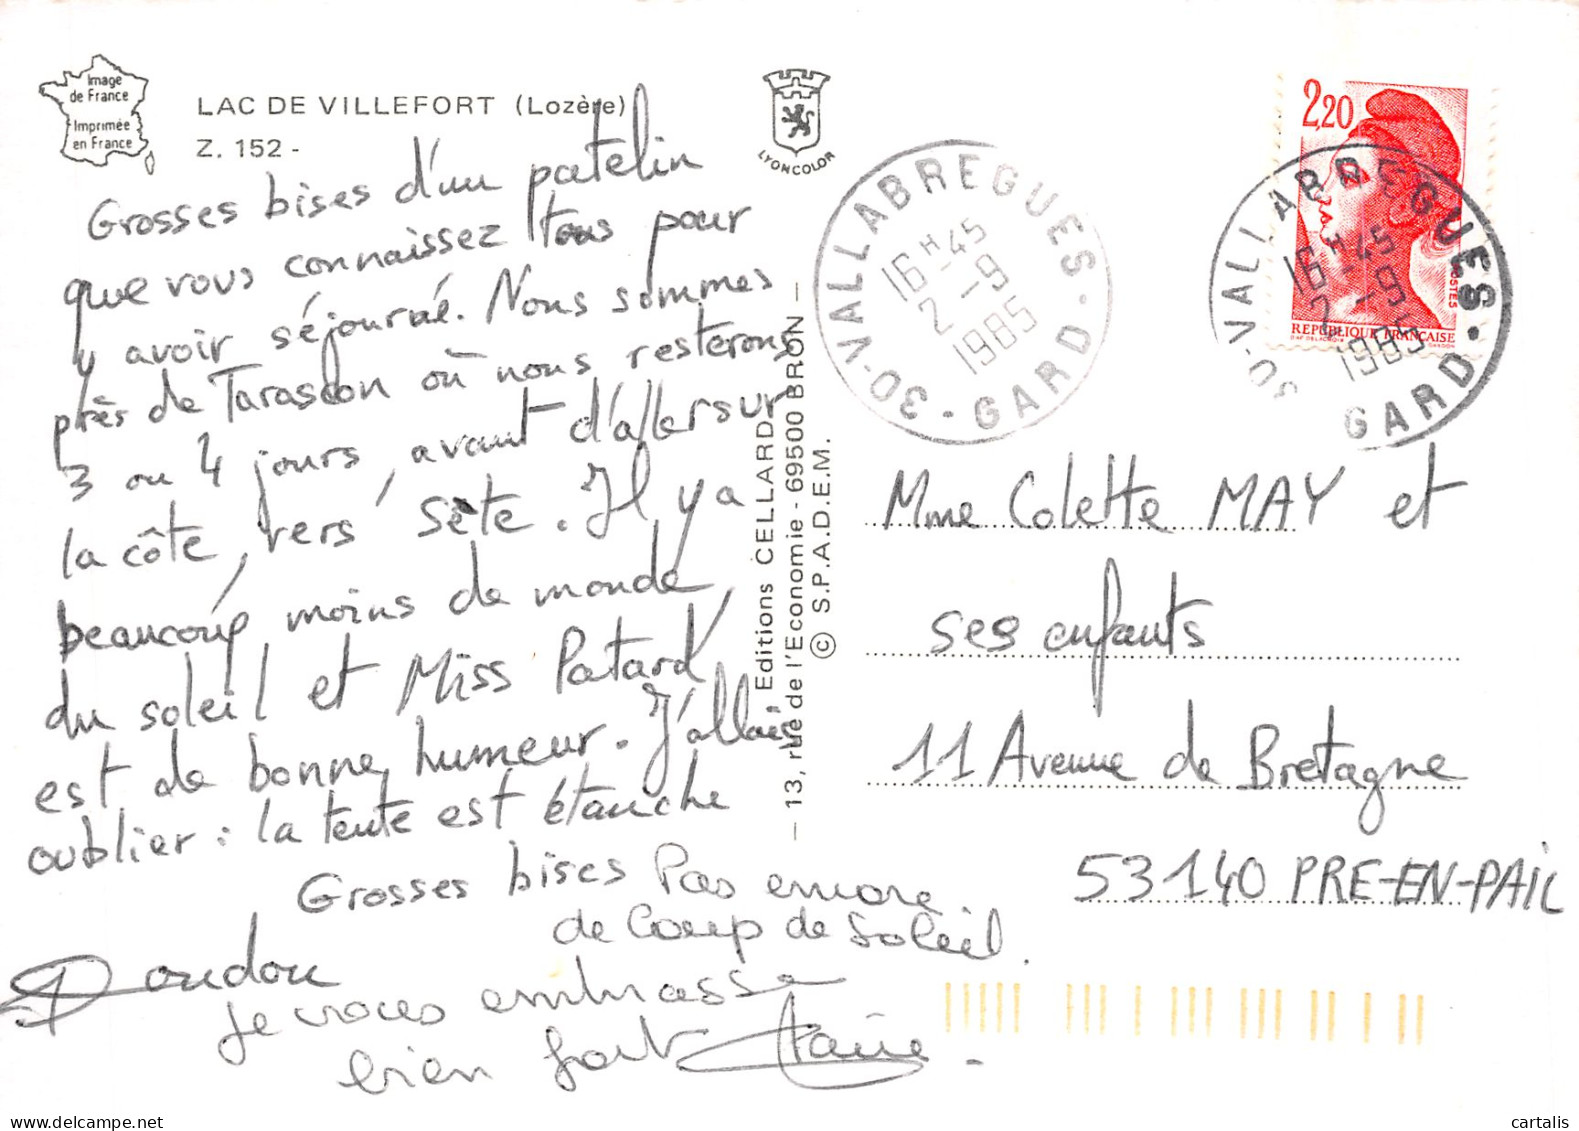 Image
de France
Imprimée
en France
LAC DE VILLEFORT (Lozère)
Z. 152 -
LYONCOLOR
Grosses bises d'un patelin
que vous connaissez tous pour
y avoir séjourné. Nous sommes
près de Tarascon où nous resterons
3 ou 4 jours, avant d'aller sur
la côte, vers Sète. Il y a
beaucoup moins de monde,
du soleil et Miss Patard
est de bonne humeur. J'allais
oublier : la tente est étanche
Grosses bises
Doudou
Pas encore
de Coup de Soleil.
Je vous embrasse
bien fort
Editions CELLARD
— 13, rue de l'Economie - 69500 BRON —
© S.P.A.D.E.M.
30-VALLABREGUES
16H-45
2-9
1985
GARD
2,20
POSTES
REPUBLIQUE FRANÇAISE
D'AP. DELACROIX
GANDON
30-VALLABREGUES
16H-45
2-9
1985
GARD
Mme Colette MAY et
ses enfants
11 Avenue de Bretagne
53140 PRE-EN-PAIL
cartalis